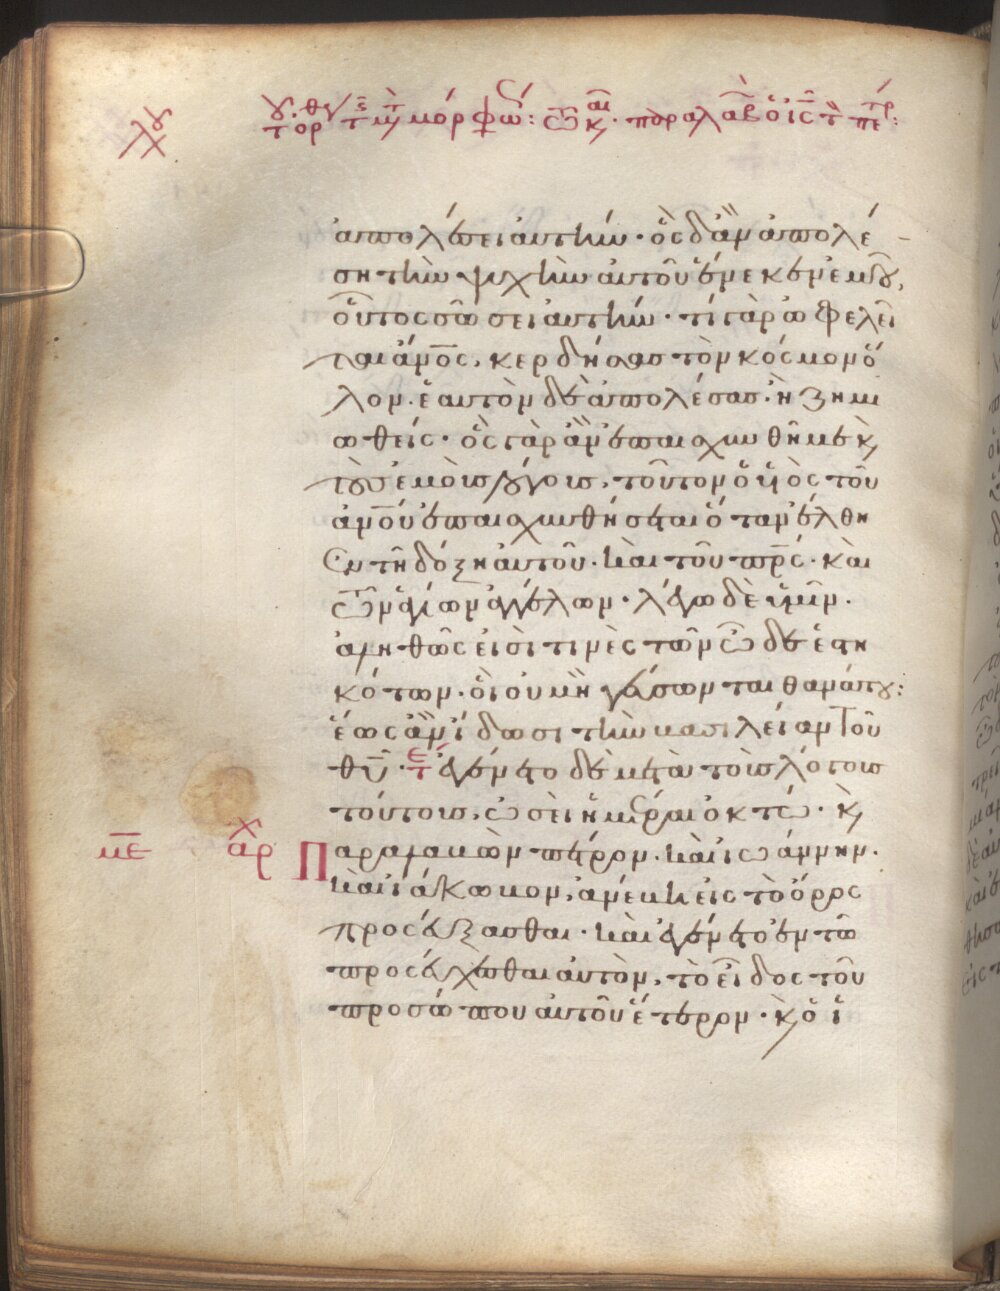 ἀπολέσει αὐτήν· ὃς δ' ἂν ἀπολέ
ση τὴν ψυχὴν αὐτοῦ ἕνεκεν ἐμοῦ,
οὗτος σώσει αὐτήν· τί γὰρ ὠφελεῖ
ται ἄνος, κερδήσας τὸν κόσμον ὅ
λον· ἑαυτὸν δὲ ἀπολέσας· ἢ ζημι
ωθείς· ὃς γὰρ ἂν ἐπαισχυνθῆ με κ
τοὺς ἐμοὺς λόγους, τοῦτον ὁ υἱὸς τοῦ
ἀνου ἐπαισχυνθήσεται ὅταν ἔλθη
ἐν τῆ δόξη αὐτοῦ· καὶ τοῦ πρς· καὶ
τῶν ἁγίων ἀγγέλων· λέγω δὲ ὑμῖν·
ἀληθῶς εἰσί τινες τῶν ὧδε ἑστη
κότων· οἳ οὐ μὴ γεύσωνται θανάτου:
ἕως ἂν ἴδωσι τὴν βασιλείαν τοῦ
θυ· ἐγένετο δὲ μετὰ τοὺς λόγους
τούτους, ὡσεὶ ἡμέραι ὀκτώ· κ
με αρχ Παραλαβὼν πέτρον· καὶ ἰωάννην·
καὶ ἰάκωβον, ἀνέβη εἰς τὸ ὄρος
προσεύξασθαι· καὶ ἐγένετο ἐν τῶ
προσεύχεσθαι αὐτὸν, τὸ εἶδος τοῦ
προσώπου αὐτοῦ ἕτερον· κ ὁ ἱ